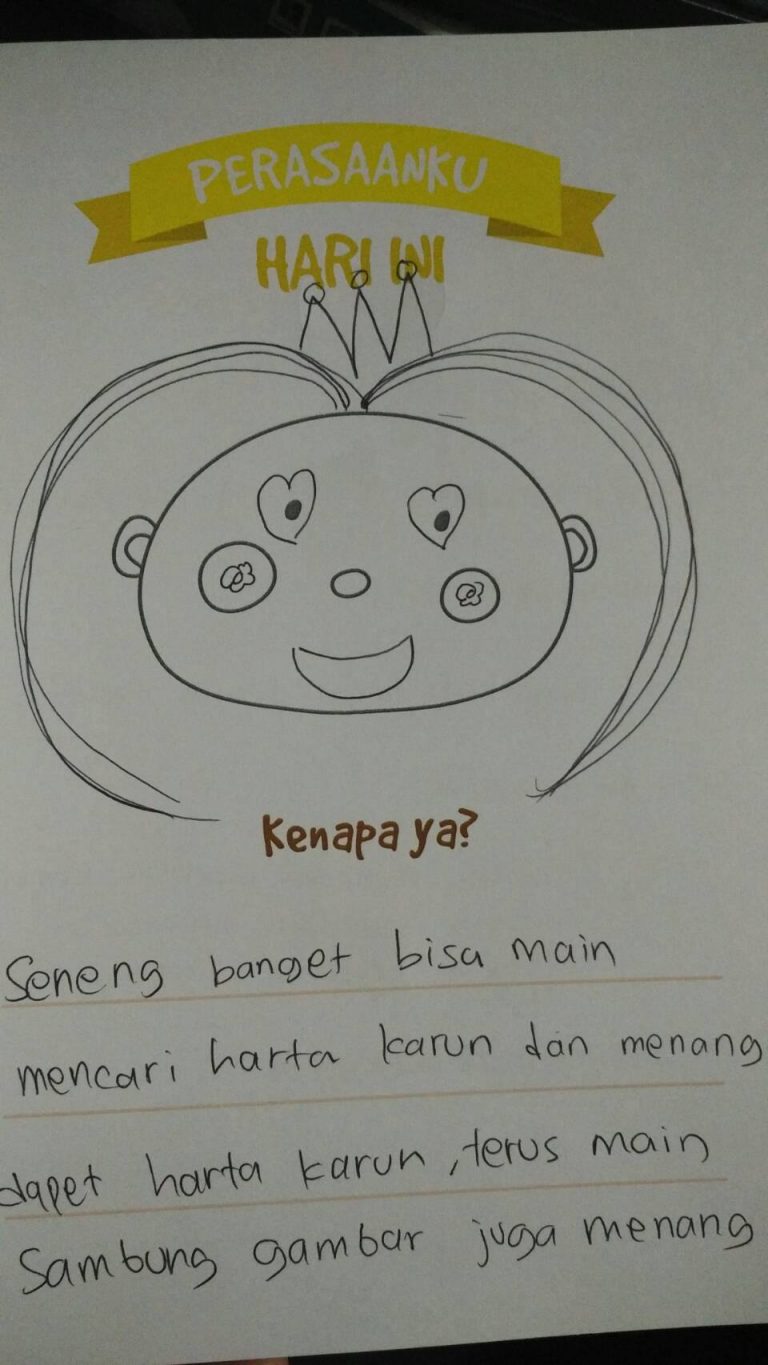 PERASAANKU
HARI INI
Kenapa ya?
Seneng banget bisa main
mencari harta karun dan menang
dapet harta karun, terus main
Sambung gambar juga menang